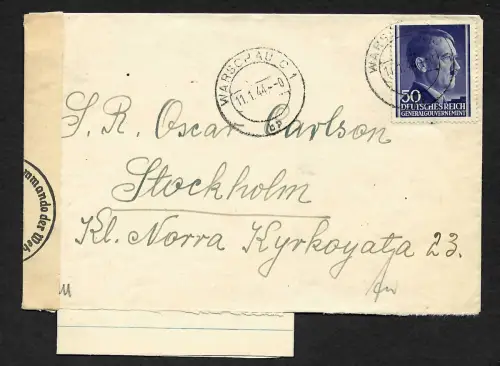 WARSCHAU C 1
11.1.44.
WARSCHAU
50
DEUTSCHES REICH
GENERALGOUVERNEMENT
S. R. Oscar Carlson
Stockholm
Kl. Norra Kyrkogata 23.
ommando der Weh